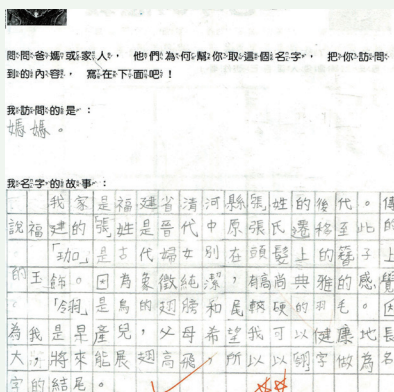 問問爸媽或家人，他們為何幫你取這個名字，把你訪問
到的內容，寫在下面吧！
我訪問的是：
媽媽。
我名字的故事：
我家是福建省清河縣張姓的後代。傳
說福建的張姓是晉代中原張氏遷移至此的
「珈」是古代婦女別在頭髮上的簪子上
的玉飾。因為象徵純潔，有高尚典雅的感覺
「翎」是鳥的翅膀和尾較硬的羽毛。因
為我是早產兒，父母希望我可以健康地長
大，將來能展翅高飛，所以以翎字做為名
字的結尾。